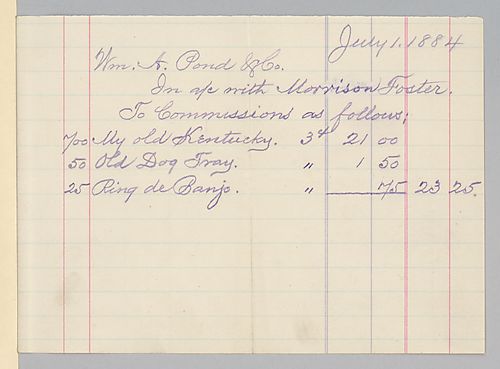 July 1. 1884
Wm. A. Pond & Co.
In a/c with Morrison Foster.
To Commissions as follows;
700 My old Kentucky. 3¢ 21 00
50 Old Dog Tray. " 1 50
25 Ring de Banjo. " 75 23 25.